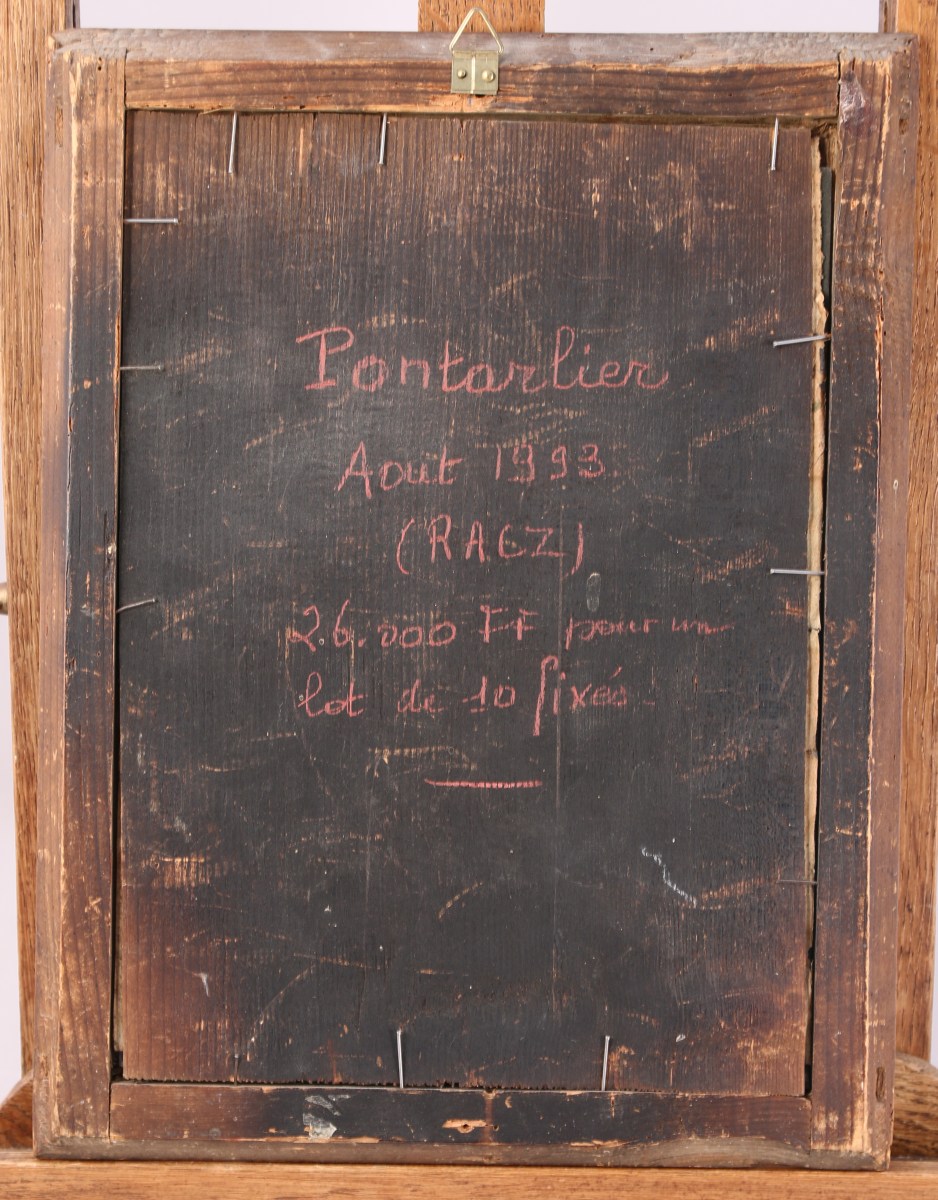 Pontarlier
Aout 1993
(RACZ)
26.000 FF pour un
lot de 10 fixés